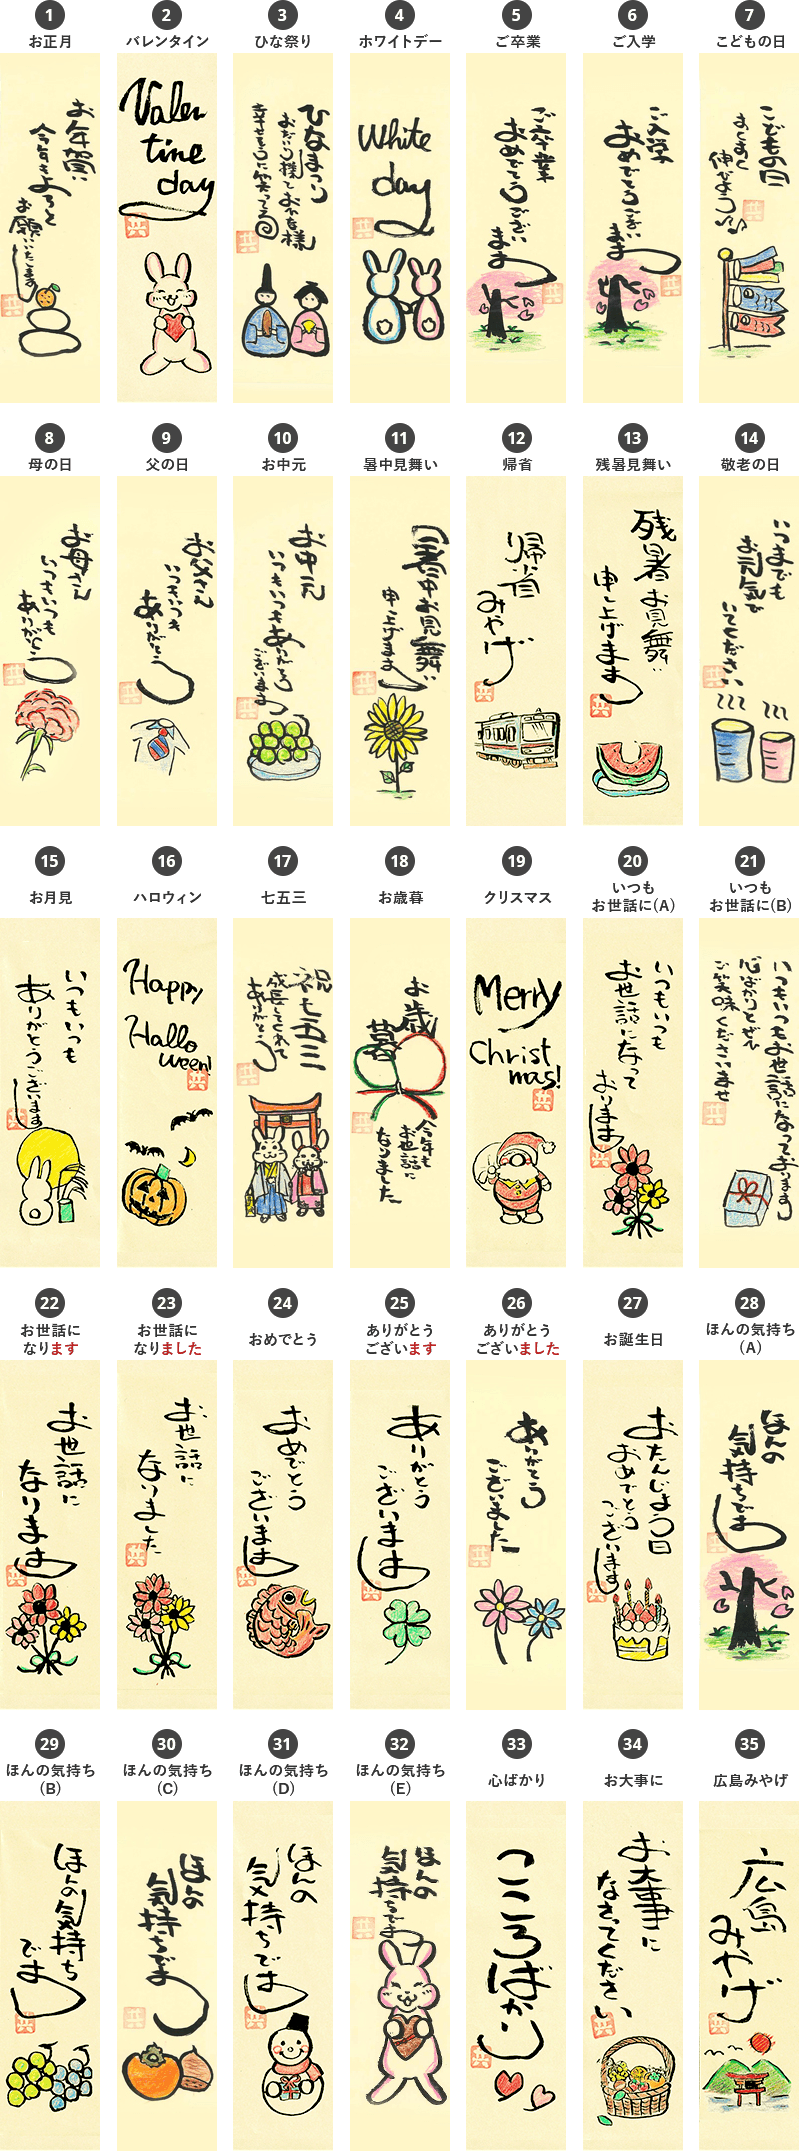 1
お正月
お年賀に
今年もよろしく
お願いいたします
2
バレンタイン
Valen
tine
day
3
ひな祭り
ひなまつり
おだいり様とおひな様
幸せそうに笑ってる
4
ホワイトデー
White
day
5
ご卒業
ご卒業
おめでとうござい
ます
6
ご入学
ご入学
おめでとうござい
ます
7
こどもの日
こどもの日
すくすく
伸びよう
8
母の日
お母さん
いつもいつも
ありがとう
9
父の日
お父さん
いつもいつも
ありがとう
10
お中元
お中元
いつもいつもありがとう
ございます
11
暑中見舞い
暑中お見舞い
申し上げます
12
帰省
帰省
みやげ
13
残暑見舞い
残暑お見舞い
申し上げます
14
敬老の日
いつまでも
お元気で
いてください
15
お月見
いつもいつも
ありがとうございます
16
ハロウィン
Happy
Hallo
ween!
17
七五三
祝七五三
成長してくれて
ありがとう
18
お歳暮
お歳
暮
今年も
お世話に
なりました
19
クリスマス
Merry
Christ
mas!
20
いつも
お世話に(A)
いつもいつも
お世話になって
おります
21
いつも
お世話に(B)
いつもいつもお世話になっております
心ばかりですが
ご笑味くださいませ
22
お世話に
なります
お世話に
なります
23
お世話に
なりました
お世話に
なりました
24
おめでとう
おめでとう
ございます
25
ありがとう
ございます
ありがとう
ございます
26
ありがとう
ございました
ありがとう
ございました
27
お誕生日
おたんじょう日
おめでとう
ございます
28
ほんの気持ち
(A)
ほんの
気持ちです
29
ほんの気持ち
(B)
ほんの気持ち
です
30
ほんの気持ち
(C)
ほんの
気持ちです
31
ほんの気持ち
(D)
ほんの
気持ちです
32
ほんの気持ち
(E)
ほんの
気持ちです
33
心ばかり
こころばかり
34
お大事に
お大事に
なさってください
35
広島みやげ
広島
みやげ